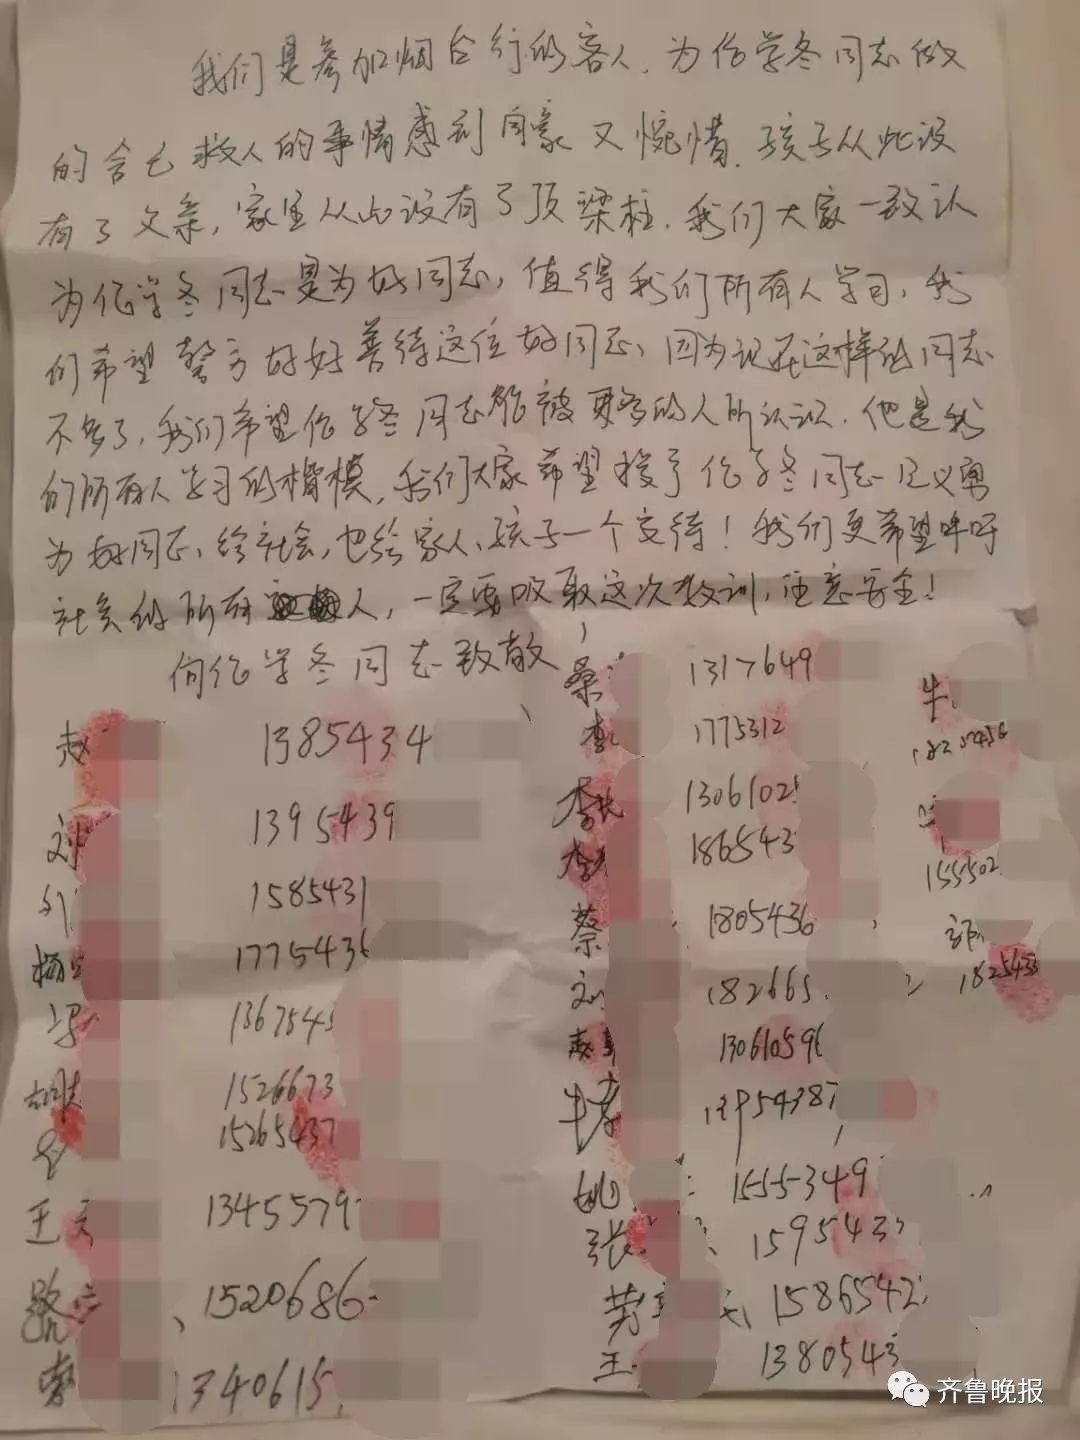 我们是参加烟台行的客人，为伦学冬同志做
的舍己救人的事情感到自豪又惋惜，孩子从此没
有了父亲，家里从此没有了顶梁柱，我们大家一致认
为伦学冬同志是为好同志，值得我们所有人学习，我
们希望警方好好善待这位好同志，因为现在这样的同志
不多了，我们希望伦学冬同志能被更多的人所认识，他是我
们所有人学习的楷模，我们大家希望授予伦学冬同志见义勇
为好同志，给社会，也给家人，孩子一个交待！我们更希望呼吁
社会的所有人，一定要吸取这次教训，注意安全！
向伦学冬同志致敬
赵 1385434
刘 1395439
1585431
杨 1775436
136754
胡 1526673
15265437
王 1345579
路 1520686
1340615
桑 1317649
李 1775312
李 1306102
李 186543
蔡 1805436
刘 182665
赵 13061059
牛 13954387
姚 1555349
张 159543
劳 1586542
王 1380543
牛
155502
182543
齐鲁晚报